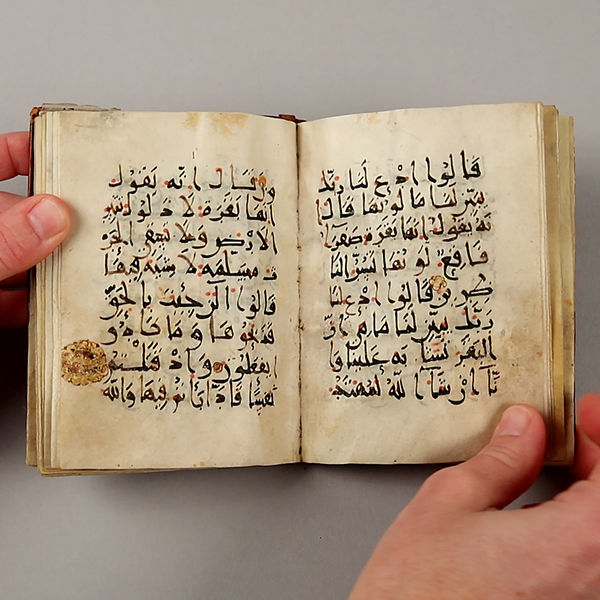 قالوا ادع لنا ربك
يبين لنا ما لونها قال ا
نه يقول انها بقرة صفرا
فاقع لونها تسر النا
ظرين قالوا ادع لنا
ربك يبين لنا ما هي ان
البقر تشبه علينا و
انا ان شا الله لمهتد
ون قال انه يقول
انها بقرة لا ذلول تثير
الارض ولا تسقي الحر
ث مسلمة لا شية فيها
قالوا الن جئت بالحق
فذبحوها وما كادوا
يفعلون واذ قتلتم
نفسا فادارأتم فيها والله